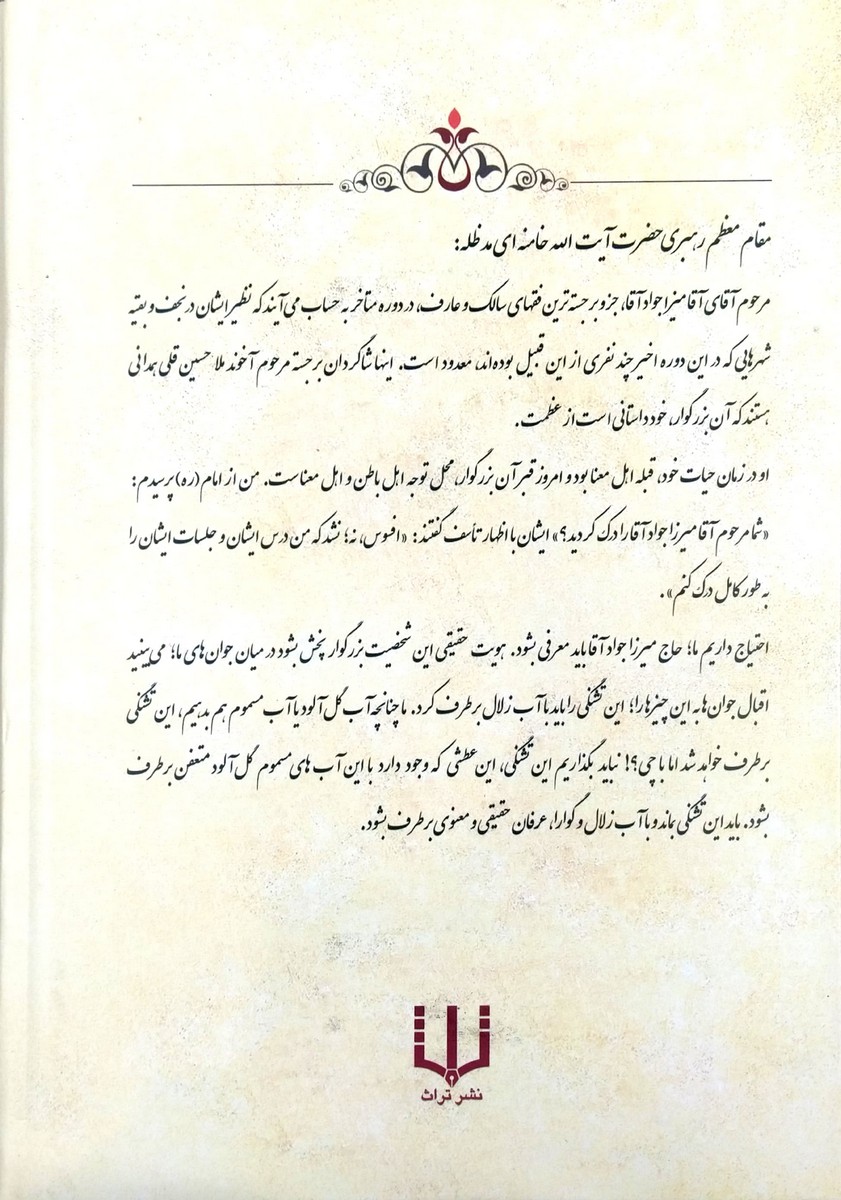 مقام معظم رهبری حضرت آیت الله خامنه ای مدظله:
مرحوم آقای آقا میرزا جواد آقا، جزو برجسته‌ترین فقهای سالک و عارف، در دوره متأخر به حساب می‌آیند که نظیر ایشان در نجف و بقیه
شهرهایی که در این دوره اخیر چند نفری از این قبیل بوده‌اند، معدود است. اینها شاگردان برجسته مرحوم آخوند ملا حسین قلی همدانی
هستند که آن بزرگوار، خود داستانی است از عظمت.
او در زمان حیات خود، قبله اهل معنا بود و امروز قبر آن بزرگوار، محل توجه اهل باطن و اهل معناست. من از امام (ره) پرسیدم:
«شما مرحوم آقا میرزا جواد آقا را درک کردید؟» ایشان با اظهار تأسف گفتند: «افسوس، نه؛ نشد که من درس ایشان و جلسات ایشان را
به طور کامل درک کنم».
احتیاج داریم ما؛ حاج میرزا جواد آقا باید معرفی بشود. هویت حقیقی این شخصیت بزرگوار پخش بشود در میان جوان‌های ما؛ می‌بینید
اقبال جوان‌ها به این چیزها را؛ این تشنگی را باید با آب زلال برطرف کرد. ما چنانچه آب گل‌آلود یا آب مسموم هم بدهیم، این تشنگی
برطرف خواهد شد اما با چی؟! نباید بگذاریم این تشنگی، این عطشی که وجود دارد با این آب های مسموم گل‌آلود متعفن برطرف
بشود. باید این تشنگی بماند و با آب زلال و گوارا، عرفان حقیقی و معنوی برطرف بشود.
نشر تراث